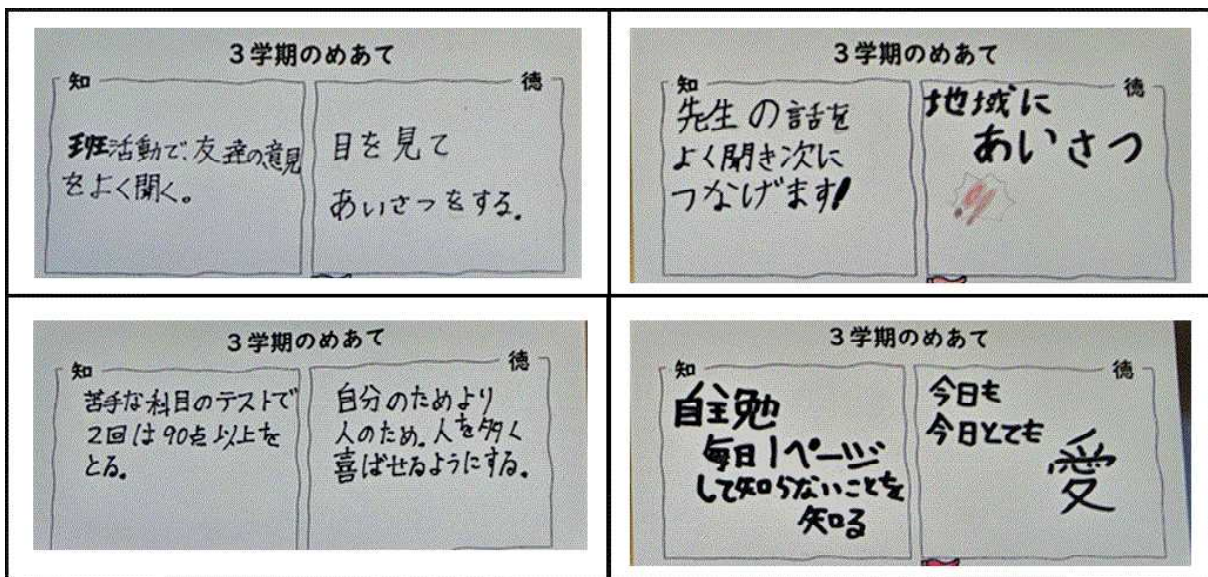 3学期のめあて
知
班活動で、友達の意見
をよく聞く。
徳
目を見て
あいさつをする。
3学期のめあて
知
先生の話を
よく聞き次に
つなげます!
徳
地域に
あいさつ
3学期のめあて
知
苦手な科目のテストで
2回は90点以上を
とる。
徳
自分のためより
人のため。人を多く
喜ばせるようにする。
3学期のめあて
知
自主勉
毎日1ページ
して知らないことを
知る
徳
今日も
今日とても
愛